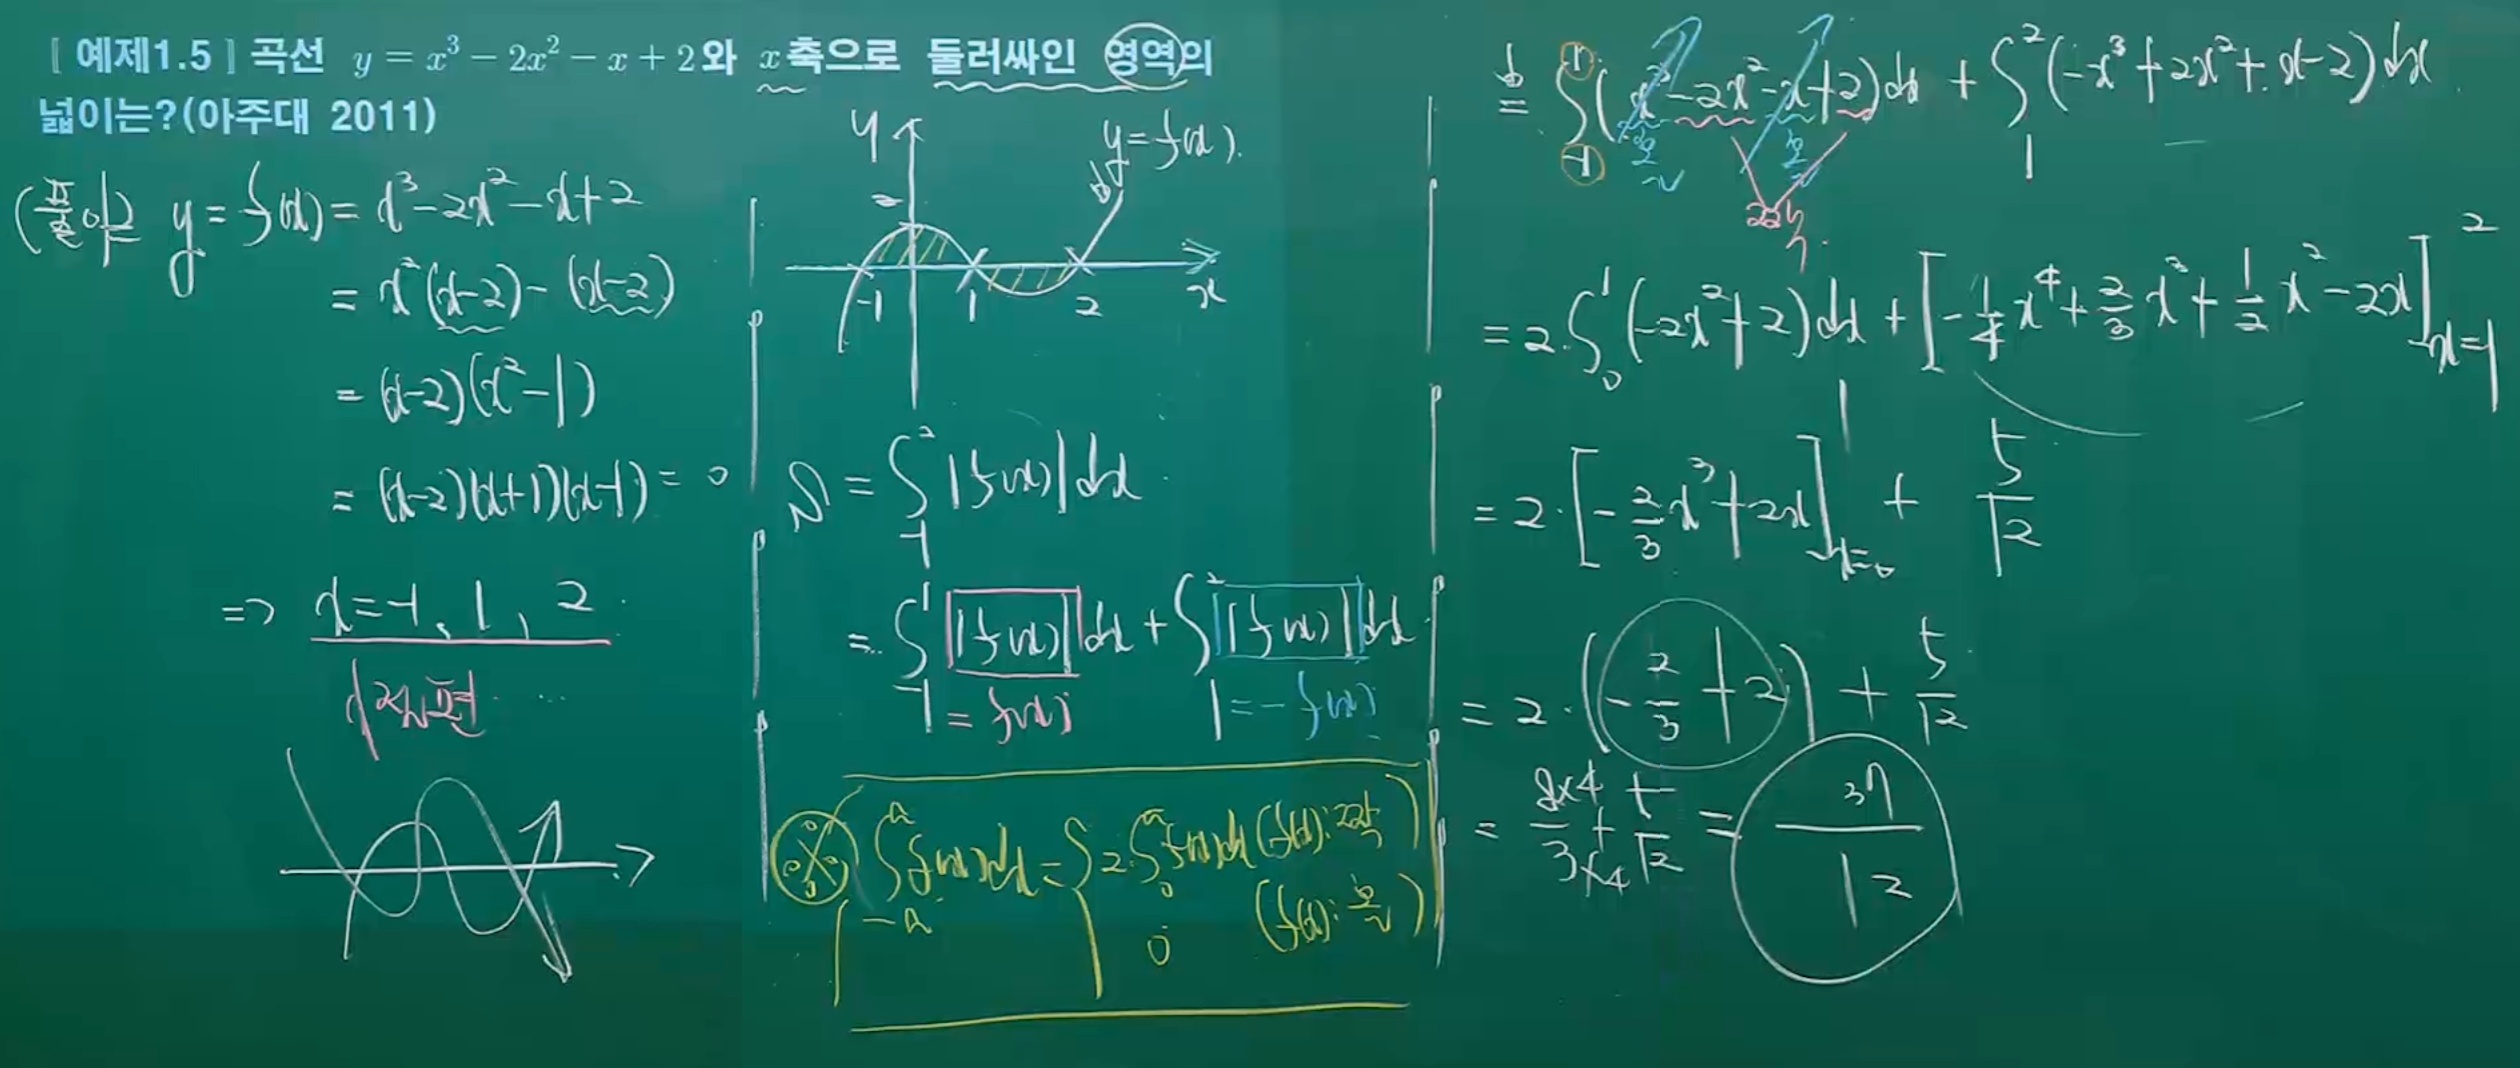 [ 예제1.5 ] 곡선 y = x³ − 2x² − x + 2와 x축으로 둘러싸인 영역의
넓이는?(아주대 2011)
(풀이) y = f(x) = x³ − 2x² − x + 2
= x²(x−2) − (x−2)
= (x−2)(x²−1)
= (x−2)(x+1)(x−1) = 0
=> x = −1, 1, 2
x절편
y
y = f(x).
2
−1 1 2 x
S = ∫_{-1}^{2} |f(x)| dx
= ∫_{-1}^{1} |f(x)| dx + ∫_{1}^{2} |f(x)| dx
= f(x) = −f(x)
∫_{-a}^{a} f(x)dx = { 2·∫_{0}^{a} f(x)dx (f(x): 짝)
0 (f(x): 홀)
= ∫_{-1}^{1} (x³ − 2x² − x + 2)dx + ∫_{1}^{2} (−x³ + 2x² + x − 2)dx
홀 홀
짝
= 2·∫_{0}^{1} (−2x² + 2)dx + [−1/4 x⁴ + 2/3 x³ + 1/2 x² − 2x]_{x=1}^{2}
= 2·[−2/3 x³ + 2x]_{x=0}^{1} + 5/12
= 2·(−2/3 + 2) + 5/12
= 8×4/3×4 + 5/12 = 37/12